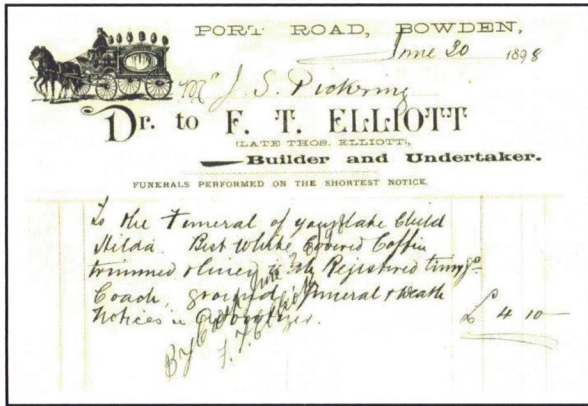 PORT ROAD, BOWDEN,
June 20 1898
Mr J. S. Pickering
Dr. to F. T. ELLIOTT
(LATE THOS. ELLIOTT),
Builder and Undertaker.
FUNERALS PERFORMED ON THE SHORTEST NOTICE.
To the Funeral of your late Child
Hilda. Best White Covered Coffin
trimmed & lined Registered
Coach, ground, Funeral & Death
Notices in £ 4 10 –
By
F. T. Elliott